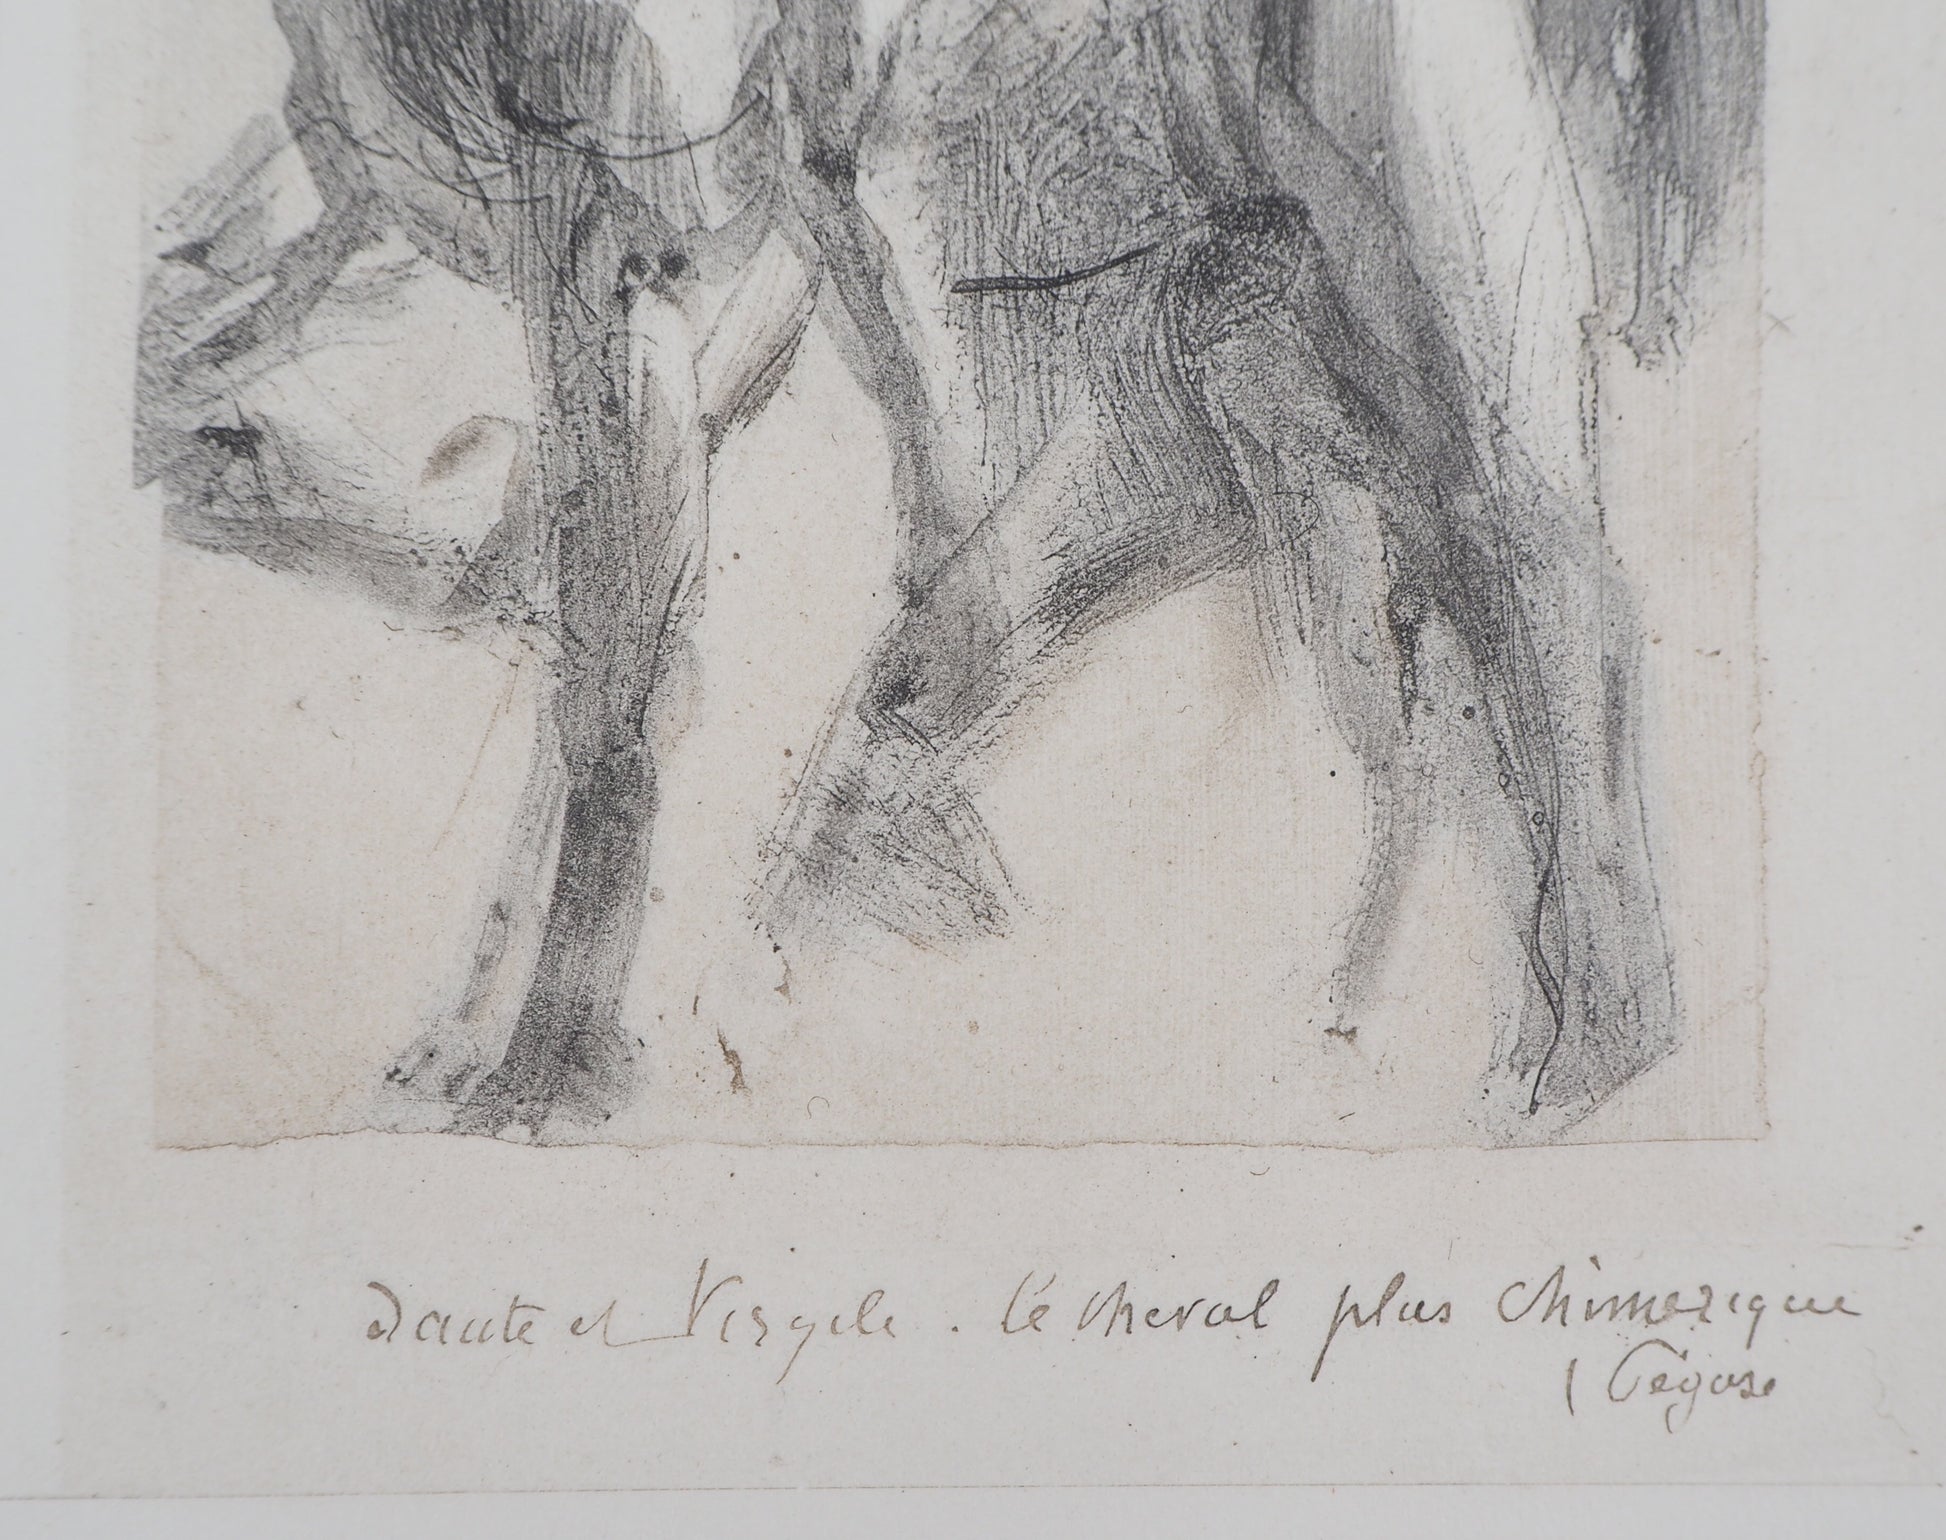 Dante et Virgile. le cheval plus chimerique
( Pégase